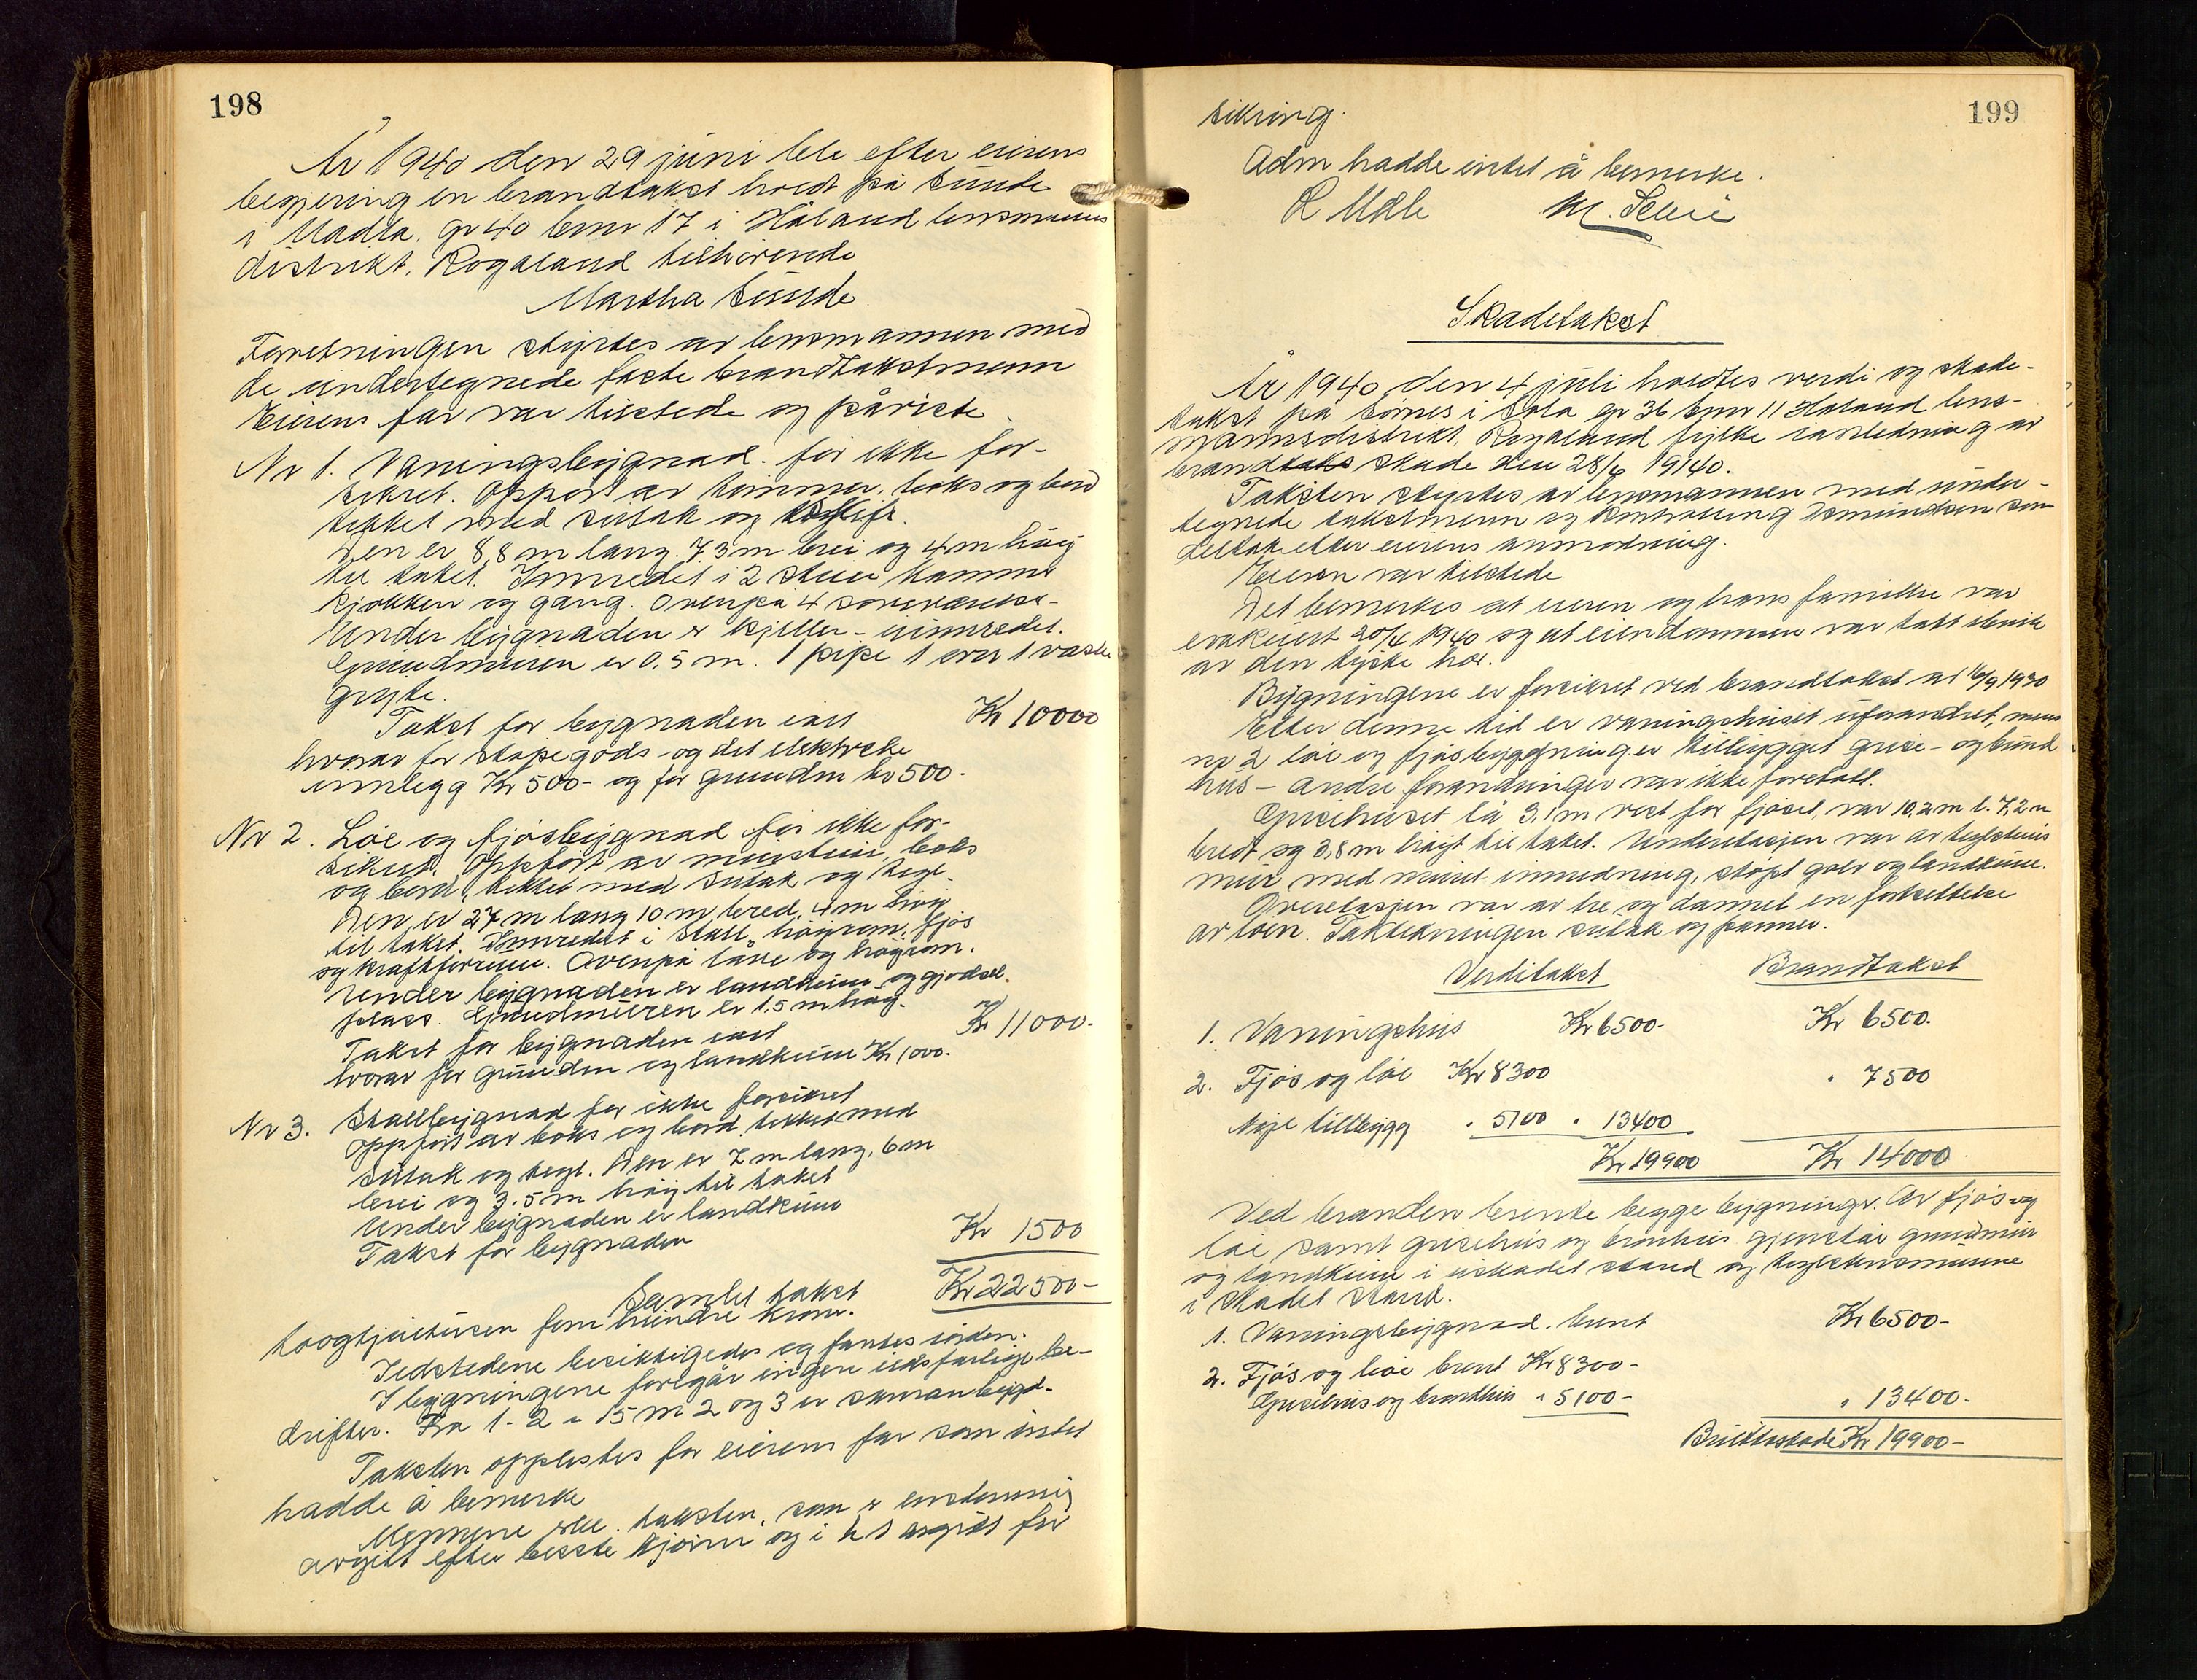 198
År 1940 den 29 juni ble efter eierens
begjering en brandtakst holdt på Sunde
i Madla. gr 40 bnr 17 i Håland lensmanns
distrikt, Rogaland tilhörende
Martha Sunde
Forretningen styrtes av lensmannen med
de undertegnede faste brandtakstmenn
Eierens far var tilstede og påviste
Nr 1. Vaningsbygnad. før ikke for-
sikret. Oppført av tømmer, boks og bord
tekket med sutak og
Den er 8,8 m lang. 7.3 m brei og 4 m høig
til taket. Innredet i 2 stuer kammer
kjøkken og gang. Ovenpå 4 soveværelse-
Under bygnaden er kjeller - uinnredet.
Grundmuren er 0,5 m. 1 pipe 1 ovn 1 vaske
gryte.
Takst for bygnaden ialt Kr 10000
hvorav for støpegods og det elektriske
innlegg Kr 500- og for grundm kr 500-
Nr 2. Løe og fjøsbygnad før ikke for-
sikret. Oppført av murstein, boks
og bord, tekket med sutak og tegl-
Den er 27 m lang 10 m bred, 4 m høig
til taket. Innredet i stall, høyrom, fjøs
og kraftforrum. Ovenpå låve og høyrom.
Under bygnaden er landkum og gjødsel-
plass. Grundmuren er 1.5 m høig-
Takst for bygnaden ialt Kr 11000-
hvorav for grunden og landkum Kr 1000-
Nr 3. Stallbygnad før ikke forsikret
oppført av boks og bord. tekket med
sutak og tegl. Den er 7 m lang, 6 m
brei og 3.5 m høig til taket
Under bygnaden er landkum
Takst for bygnaden Kr 1500
Samlet takst Kr 22500-
toogtjuetusen fem hundre kroner.
Ildstedene besiktigedes og fantes iorden.
I bygningene foregår ingen ildsfarlige be-
drifter. Fra 1-2 = 15 m 2 og 3 er sammanbygd-
Taksten opplestes for eierens far som intet
hadde å bemerke
Mennene taksten, som er enstemmig
avgitt efter beste skjønn og i avgitt for
199
sikring.
Adm hadde intet å bemerke.
M.
Skadetakst
År 1940 den 4 juli holdtes verdi og skade-
takst på Sørnes i Sola gr 36 bnr 11 Håland lens-
mannsdistrikt, Rogaland fylke i anledning av
brandtaks skade den 28/6 1940.
Taksten styrtes av lensmannen med under-
tegnede takstmenn og Asmundsen som
deltok efter eierens anmodning.
Eieren var tilstede
Det bemerkes at eieren og hans familie var
evakuert 20/4 1940 og at eiendommen var tatt i bruk
av den tyske hær.
Bygningene er forsikret ved brandtakst av 16/9 1930
Etter denne tid er vaningshuset uforandret, mens
nr 2 løe og fjøsbyggninger tilbygget grise- og
hus - andre forandringer var ikke foretatt.
Grisehuset lå 3,1 m vest for fjøset, var 10,2 m l. 7,2 m
bredt og 3,8 m høigt til taket. Underetasjen var av teglsteins
mur med muret innredning, støpt golv og landkum.
Overetasjen var av tre og dannet en fortsettelse
av løen. Taktekningen sutak og panner.
Verditakst Brandtakst
1. Vaningshus Kr 6500- Kr 6500.
2. Fjøs og løe Kr 8300 " 7500
Nye tillbygg " 5100 " 13400
Kr 19900 Kr 14000
Ved branden brente begge bygninger. Av fjøs og
løe samt grisehus og gjenstår grunnmur
og landkum i uskadet stand og teglstensmurene
i skadet stand.
1. Vaningsbygnad. brent Kr 6500-
2. Fjøs og løe brent Kr 8300-
Grisehus og " 5100- " 13400.
Bruttoskade Kr 19900-